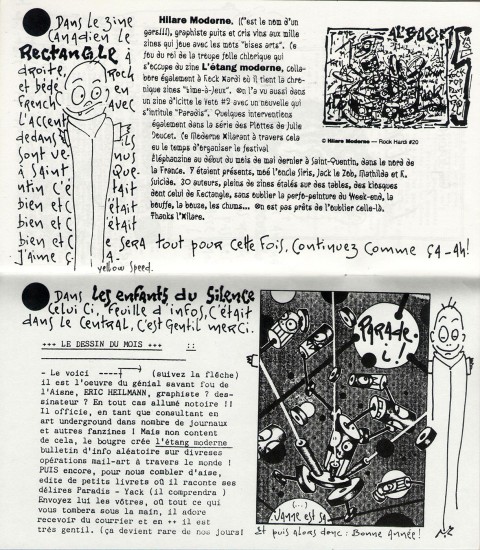 Dans le zine
Canadien le
RECTANGLE à
droite, Rock
et bédé en
French avec
L'Accent
dedans ils
sont ve- nus
à Saint Que-
ntin C'é tait
bien et C 'était
bien et C 'était
bien et C e SERA tout pour cette fois. Continuez Comme ça-Ah!
J'aime ça-
yellow Speed.
Hilare Moderne. (C'est le nom d'un
gars!!!), graphiste puits et cris vins aux mille
zines qui joue avec les mots "bises arts". Ce
fou du roi de la troupe folle chlorique qui
s'occupe du zine L'étang moderne, colla-
bore également à Rock Hardi où il tient la chro-
nique zines "zine-à-Jeux". On l'a vu aussi dans
un zine d'icitte le Vete #2 avec un nouvelle qui
s'intitule "Paradis". Quelques interventions
également dans la série des Plottes de Julie
Doucet. Ce Moderne Hilarant à travers cela
eu le temps d'organiser le festival
Éléphanzine au début du mois de mai dernier à Saint-Quentin, dans le nord de
la France. Y étaient présents, moé l'oncle Siris, Jack le Zeb, Mathilda et R.
Suicide. 30 auteurs, pleins de zines étalés sur des tables, des kiosques
dont celui de Rectangle, sans oublier la perfo-peinture du Week-end, la
bouffe, la bouze, les chums... On est pas prêts de l'oublier celle-là.
Thanks l'Hilare.
© Hilare Moderne — Rock Hardi #20
Dans Les enfants du Silence
Celui Ci, feuille d'infos, C'était
dans le Central, C'est Gentil merci.
+++ LE DESSIN DU MOIS +++ ::
- Le voici ----→ (suivez la flêche)
il est l'oeuvre du génial savant fou de
l'Aisne, ERIC HEILMANN, graphiste ? des-
sinateur ? En tout cas allumé notoire !!
Il officie, en tant que consultant en
art underground dans nombre de journaux
et autres fanzines ! Mais non content
de cela, le bougre crée l'étang moderne
bulletin d'info aléatoire sur divreses
opérations mail-art à travers le monde !
PUIS encore, pour nous combler d'aise,
edite de petits livrets où il raconte ses
délires Paradis - Yack (il comprendra )
Envoyez lui les vôtres, où tout ce qui
vous tombera sous la main, il adore
recevoir du courrier et en ++ il est
très gentil. (ça devient rare de nos jours)
PARADE.
(...)
Et puis Alors donc : Bonne Année!